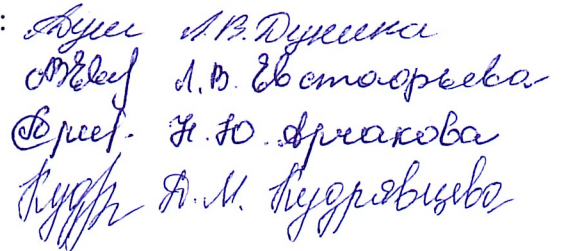 : Л.В. Дунина
Л.В. Евстафьева
Н.Ю. Арчакова
Кудр Т.М. Кудрявцева